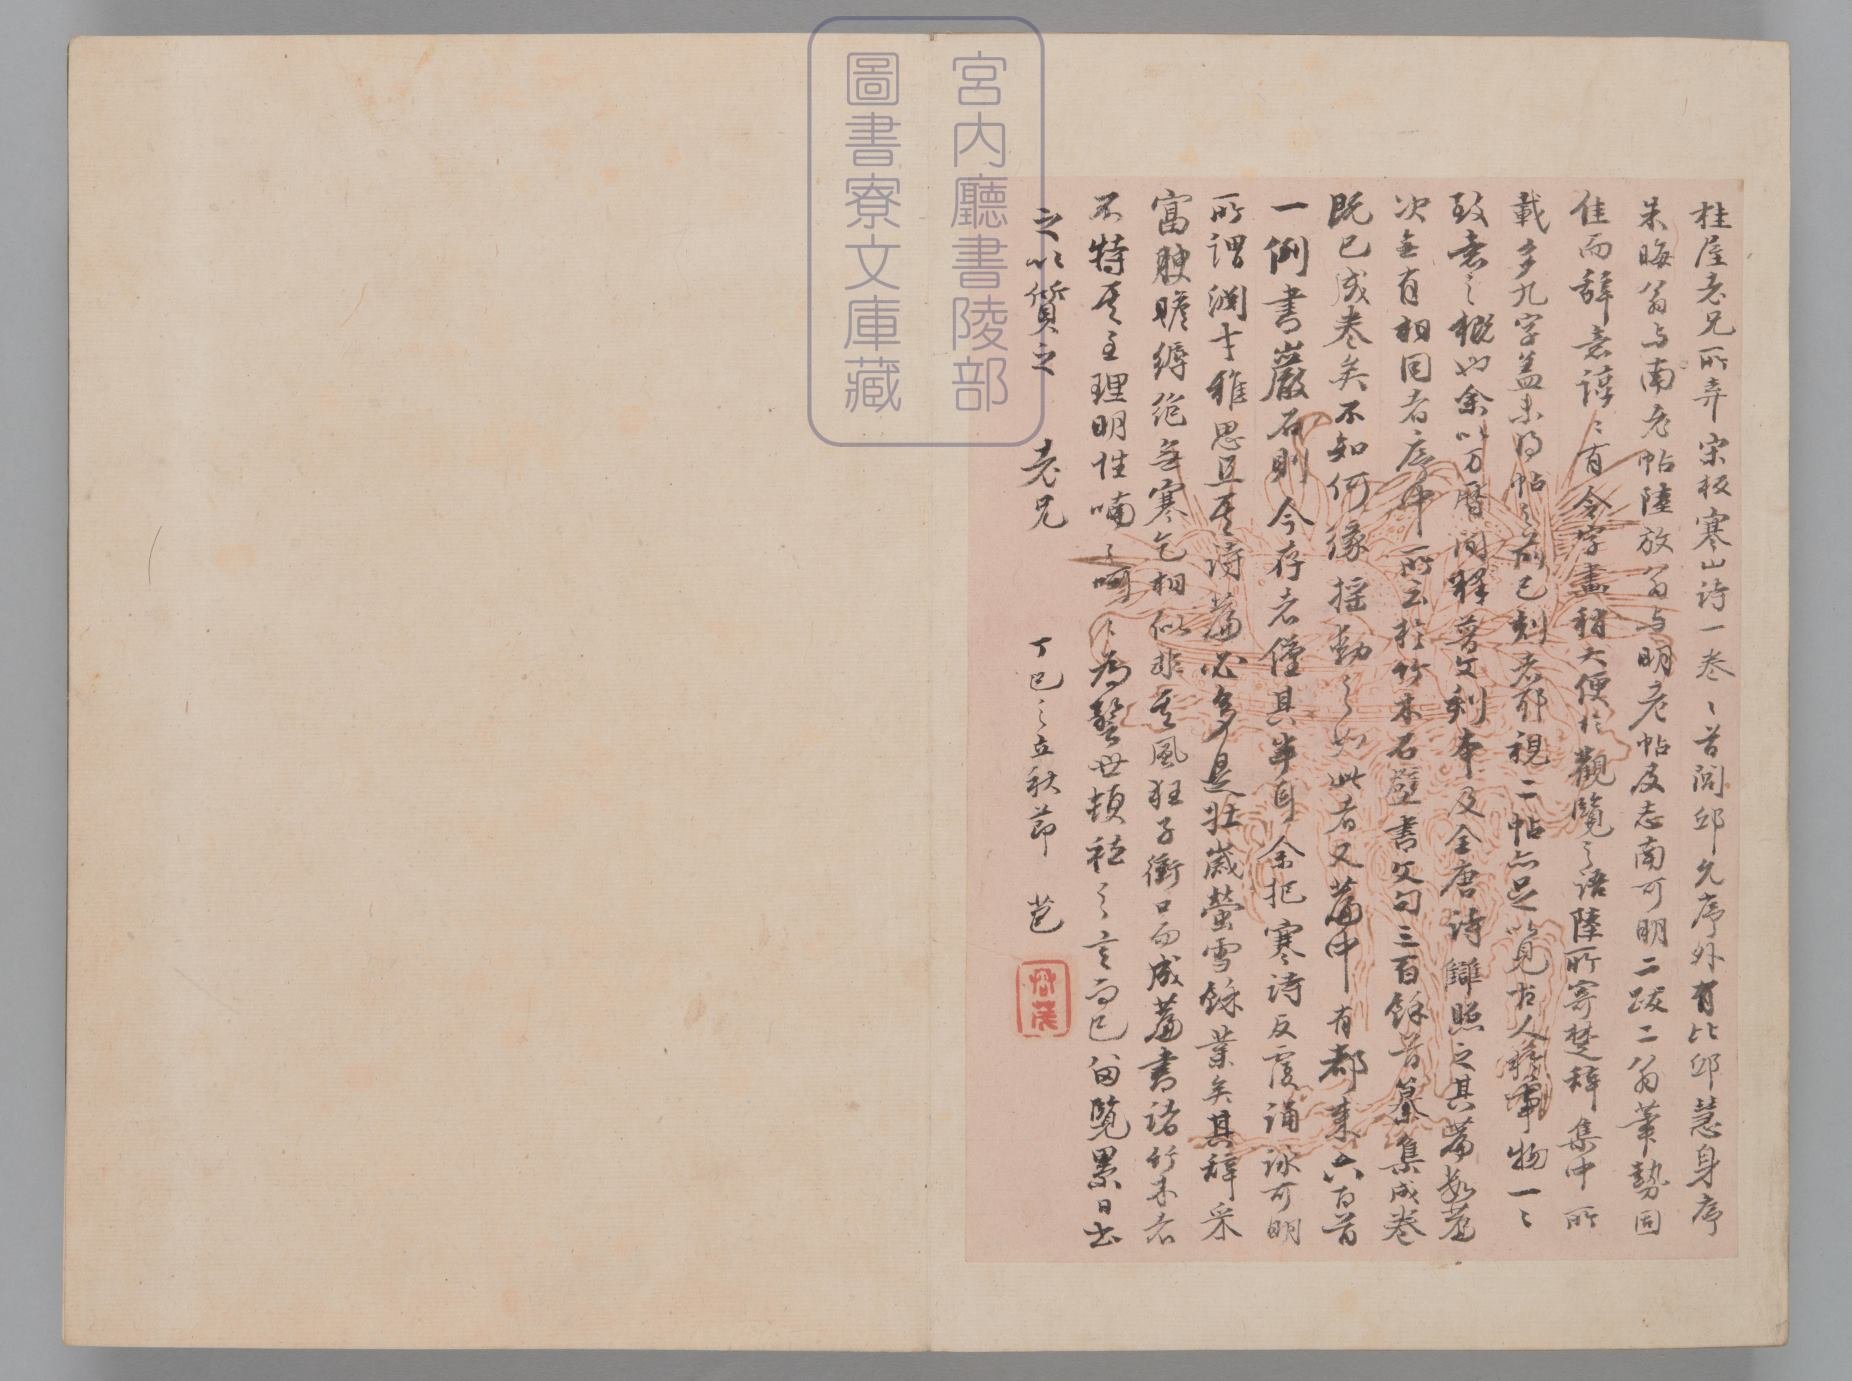 桂屋老兄所弆宋板寒山詩一卷〻首閭邱允序外有比邱慧身序
朱晦翁与南老帖陸放翁与明老帖及志南可明二跋二翁筆勢固
佳而辞意諄〻有令字畫稍大便於觀覽之語陸所寄楚辞集中所
載多九字盖未得帖之前已刻者耶視二帖亦足以覽古人於事物一〻
致意之概也余以万暦間釋普文刻本及全唐詩讎照之其篇數差
次無有相同者序中所云於竹木石壁書文句三百餘首纂集成卷
既已成卷矣不如何縁揺動之如此者又篇中有都来六百首
一例書巖石則今存者僅其半耳余把寒詩反覆誦詠可明
所謂渊才雅思且其詩篇必多是壮歳螢雪餘業矣其辞采
富腴贍縟絶無寒乞相似非其風狂子衝口而成篇書諸竹木者
不特其至理明性喃〻呵〻為警世頑之言而已留覽累日書
之以質之　老兄
丁巳之立秋節　苞
宮内廳書陵部
圖書寮文庫藏